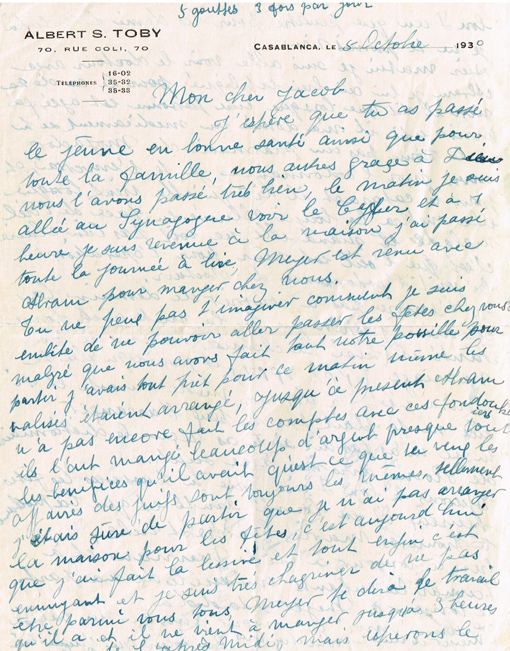 5 gouttes 3 fois par jour
ALBERT S. TOBY
70, RUE COLI, 70
TÉLÉPHONES
16-02
35-32
35-33
CASABLANCA, LE 5 Octobre 1930
Mon cher Jacob
J'espère que tu as passé
le jeûne en bonne santé ainsi que pour
toute la famille, nous autres grace à Dieu
nous l'avons passé très bien, le matin je suis
allée au Synagogue voir le et à 1
heure je suis revenue à la maison j'ai passé
toute la journée à lire, Meyer est venu avec
Abram pour manger chez nous.
Tu ne peux pas t'imaginer comment je suis
embêté de ne pouvoir aller passer les fêtes chez vous
malgré que nous avons fait tout notre possible pour
partir j'avais tout prêt pour ce matin même les
valises étaient arrangé, jusqu'à présent Abram
n'a pas encore fait les comptes avec ces
ils l'ont mangé beaucoup d'argent presque tout
les bénéfices qu'il avait qu'est ce que tu veux les
affaires des juifs sont toujours les mêmes, tellement
j'étais sûre de partir que je n'ai pas arranger
la maison pour les fêtes, c'est aujourd'hui
que j'ai fait la lessive et tout enfin c'est
ennuyant et je suis très chagriner de ne pas
être parmi vous tous, Meyer te dira le travail
qu'il a et il ne vient à manger jusqua 3 heures
de l'après midi, mais esperons le